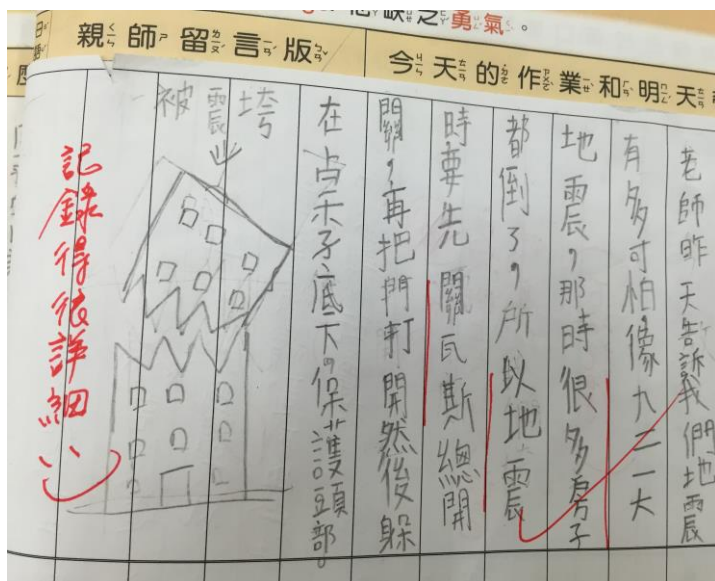 之勇氣。
今天的作業和明天
親師留言版
老師昨天告訴我們地震
有多可怕，像九二一大
地震，那時很多房子
都倒了，所以地震
時要先關瓦斯總開
關，再把門打開然後躲
在桌子底下。保護頭部。
被震垮
記錄得很詳細